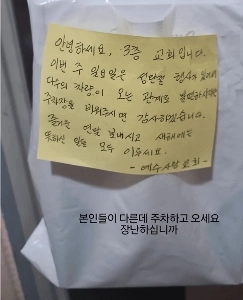 안녕하세요. 3층 교회입니다.
이번 주 일요일은 성탄절 행사가 있어서
다수의 차량이 오는 관계로 불편하시지만
주차장을 비워주시면 감사하겠습니다.
즐거운 연말 보내시고 새해에는
뜻하신 일들 모두 이루세요.
- 예수사랑교회 -
본인들이 다른데 주차하고 오세요
장난하십니까